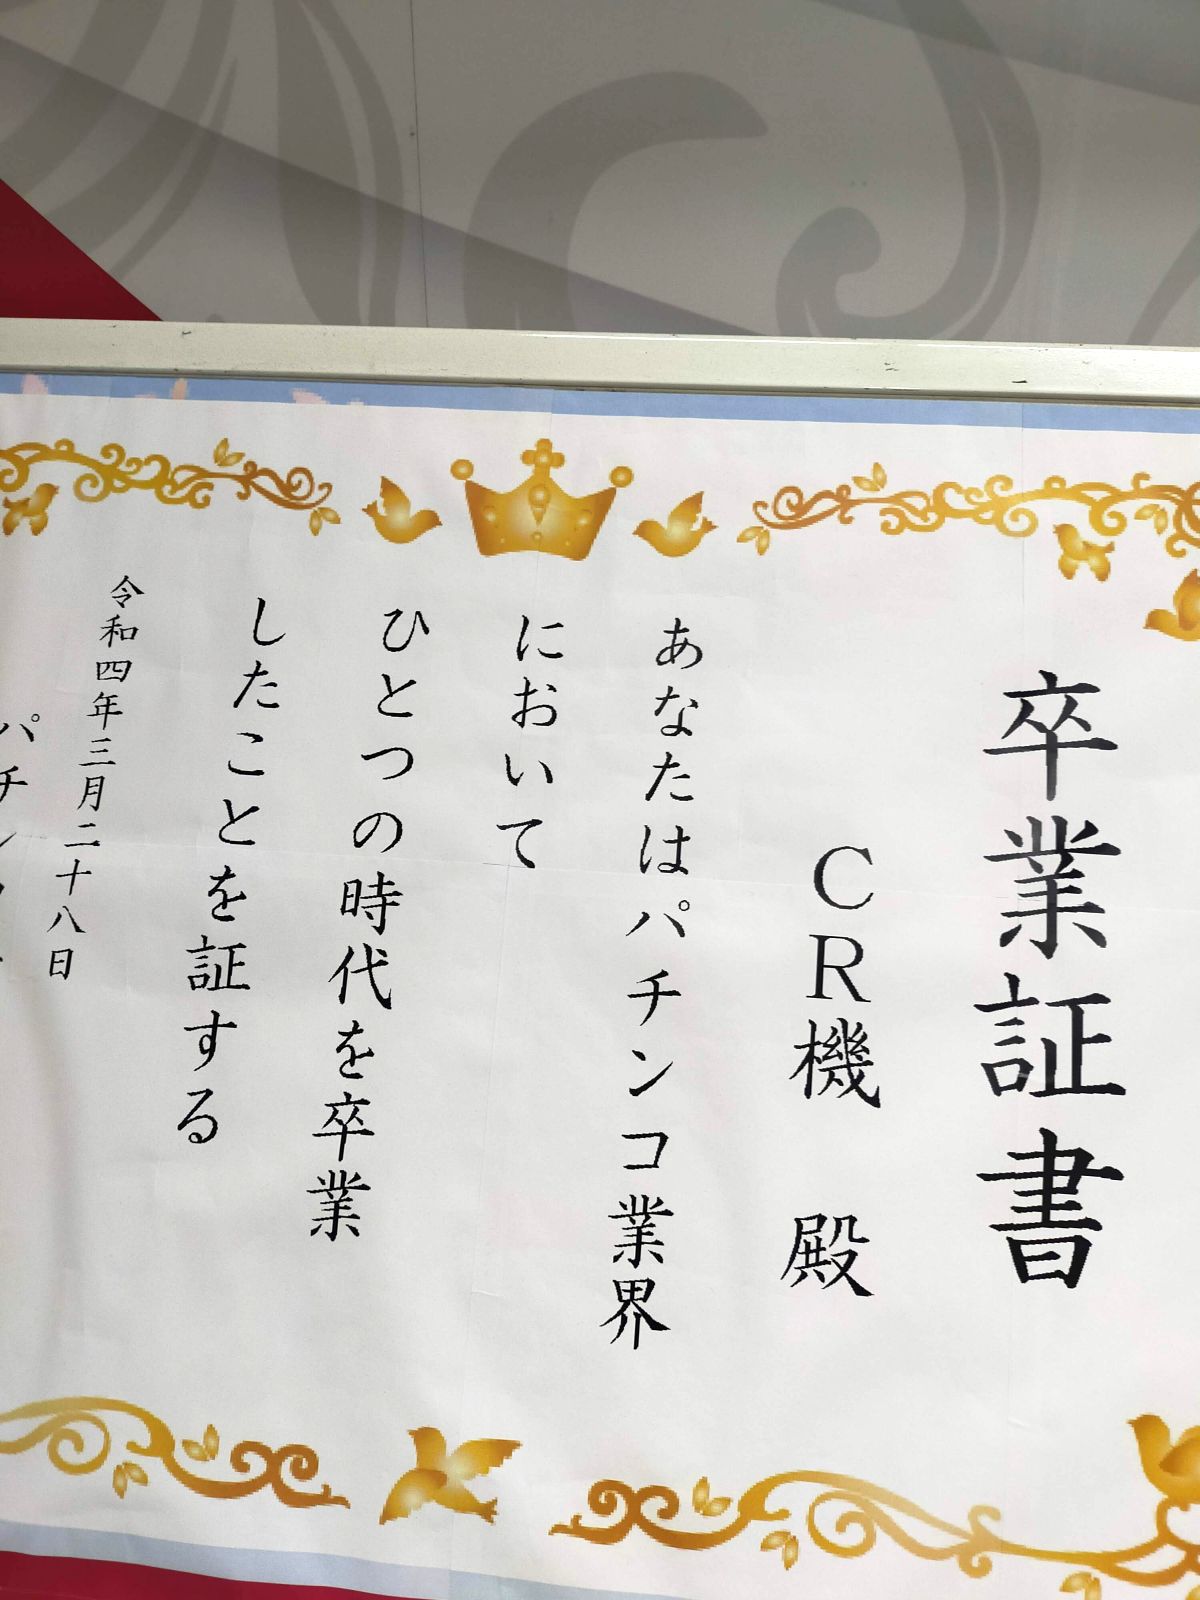 卒業証書
CR機 殿
あなたはパチンコ業界
において
ひとつの時代を卒業
したことを証する
令和四年三月二十八日
パチン